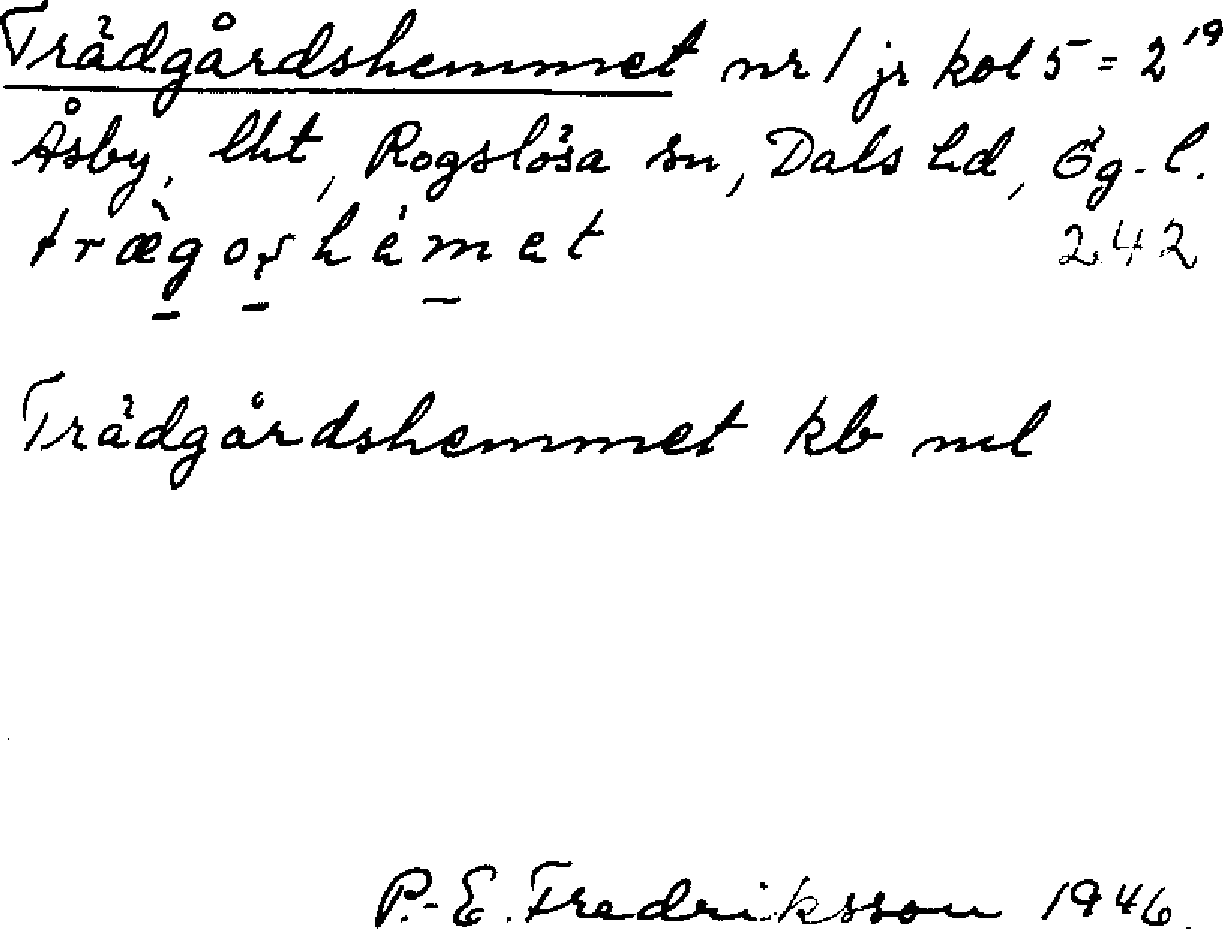 Trädgårdshemmet nr 1 jr kol 5 = 2¹⁹
Åsby, lht, Rogslösa sn, Dals hd, Ög. l.
trægoshemet 242
Trädgårdshemmet kb ml
P.-E. Fredriksson 1946.